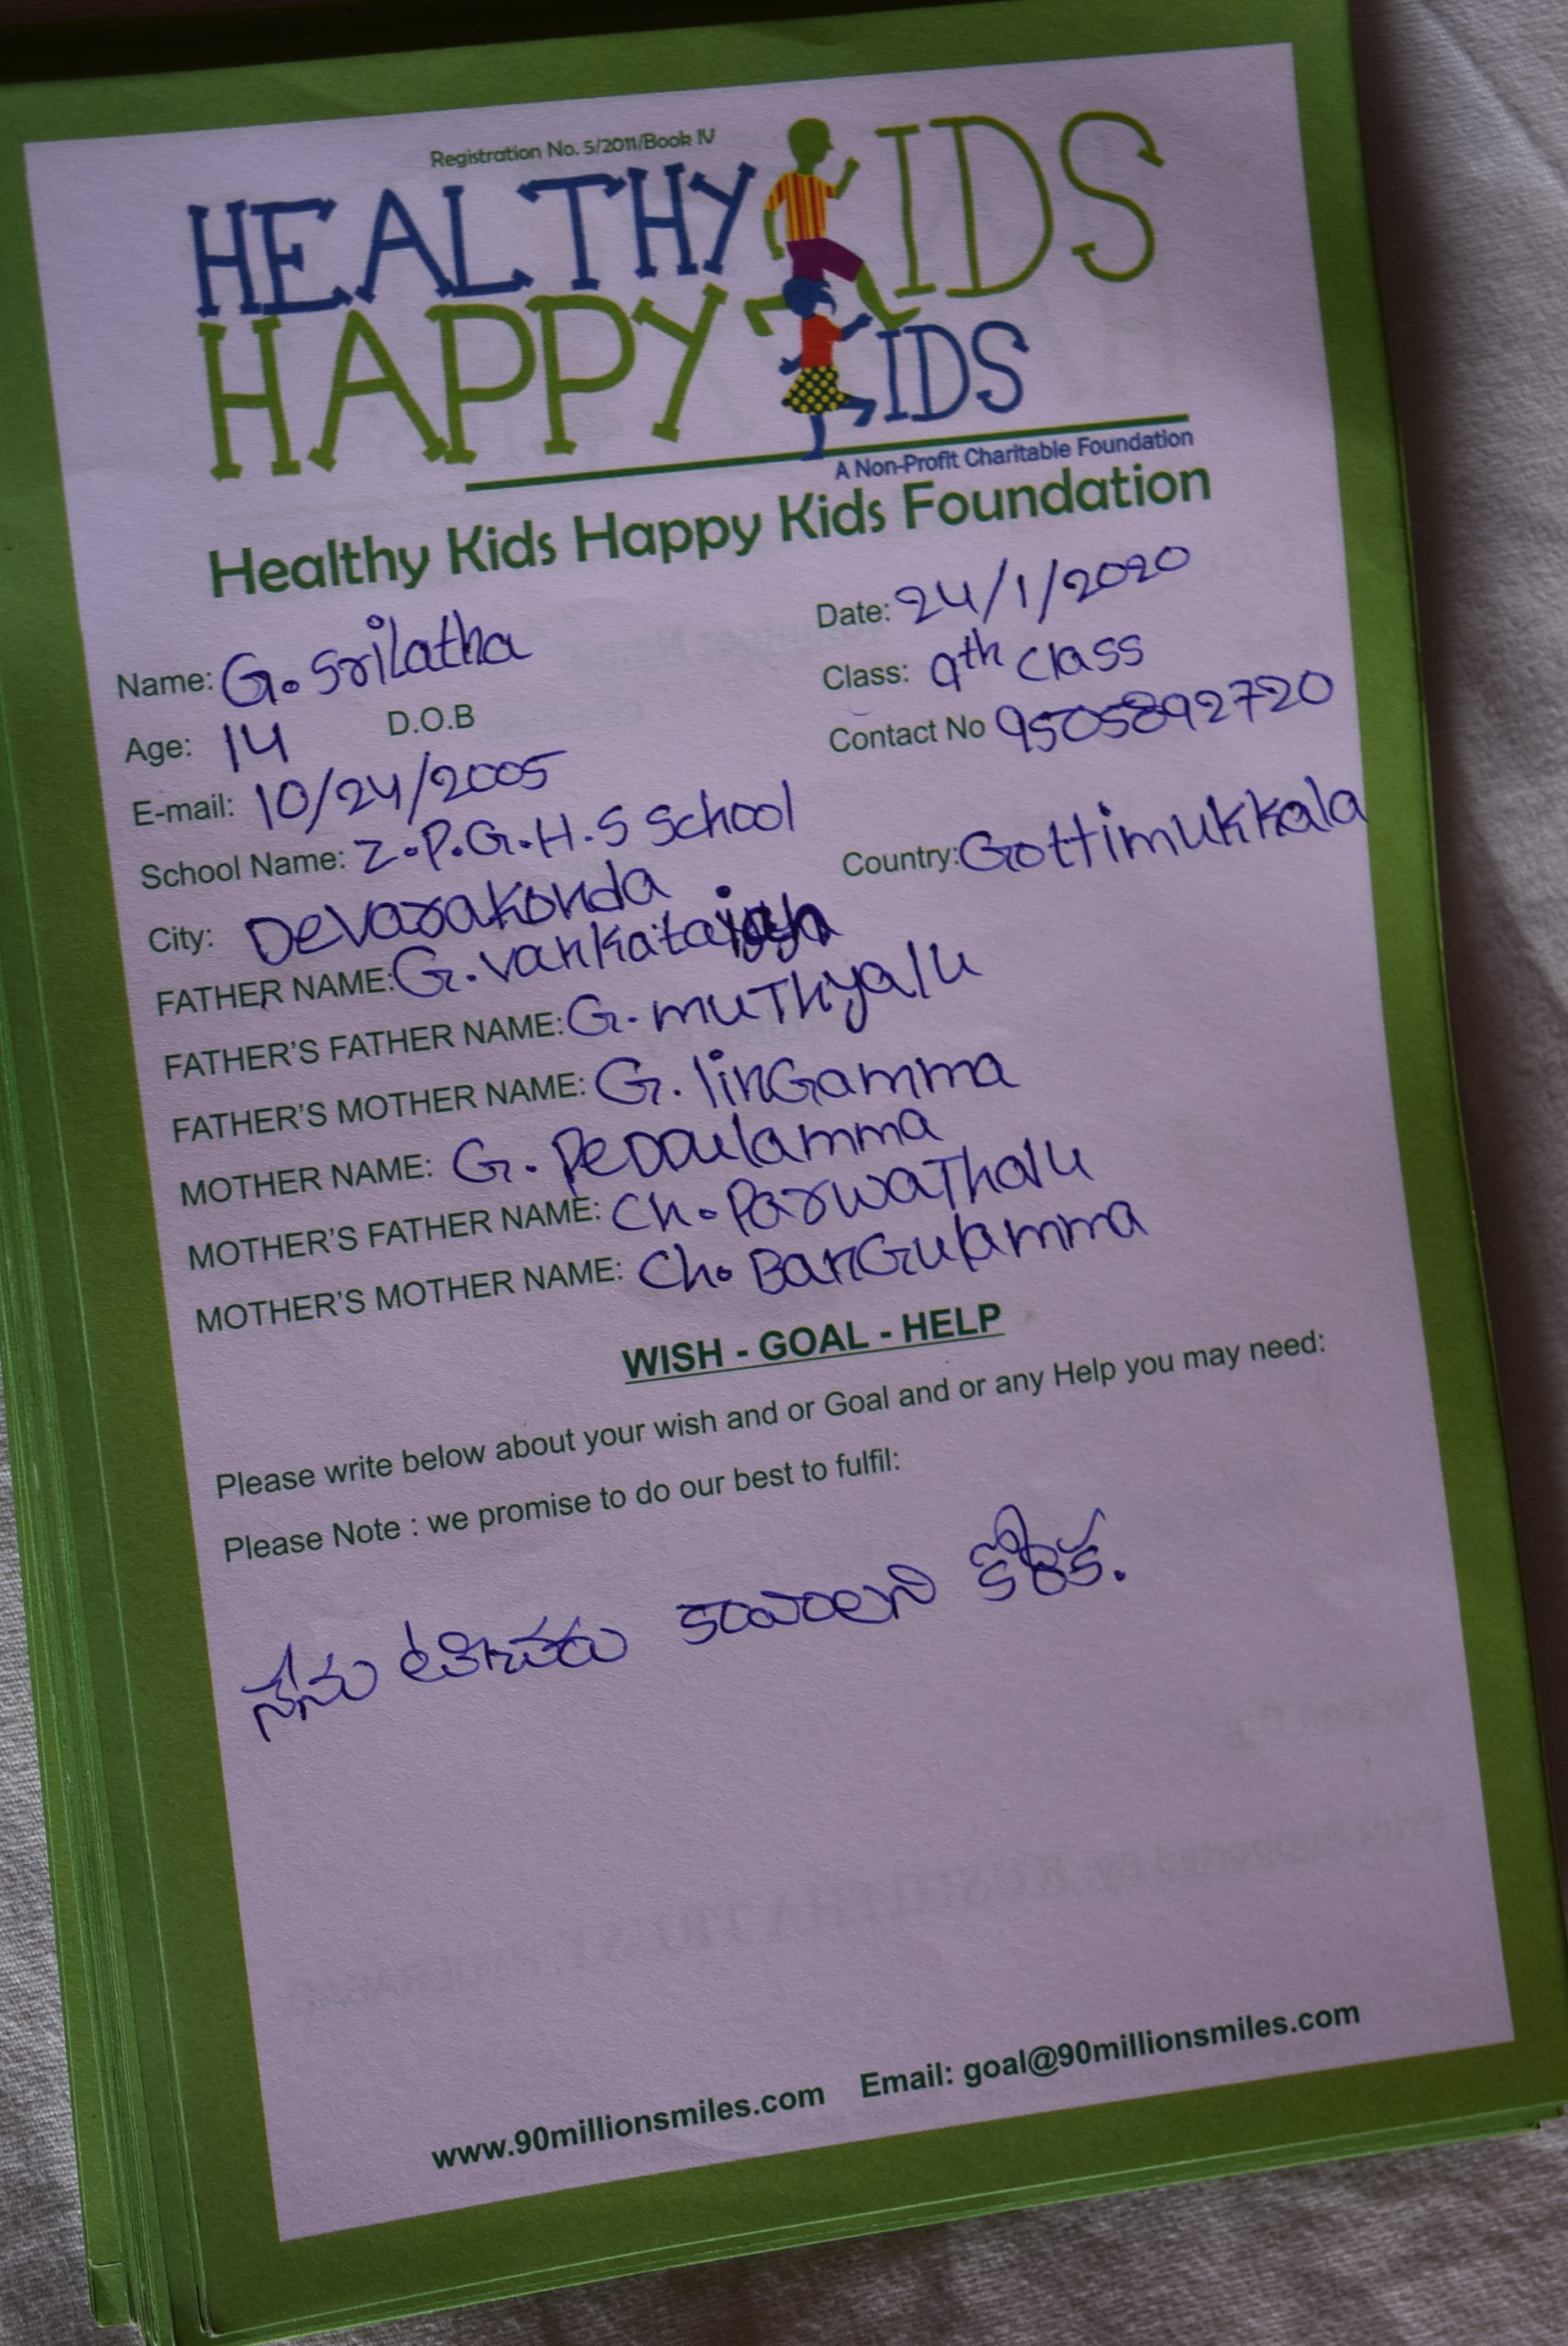 Registration No. 5/2011/Book IV
HEALTHY KIDS
HAPPY KIDS
A Non-Profit Charitable Foundation
Healthy Kids Happy Kids Foundation
Name: G. Srilatha Date: 24/1/2020
Age: 14 D.O.B Class: 9th Class
E-mail: 10/24/2005 Contact No 9505892720
School Name: Z.P.G.H.S School
City: Devarakonda Country: Gottimukkala
FATHER NAME: G. Vankataiah
FATHER'S FATHER NAME: G. muThyalu
FATHER'S MOTHER NAME: G. linGamma
MOTHER NAME: G. PeDDulamma
MOTHER'S FATHER NAME: Ch. ParwaThalu
MOTHER'S MOTHER NAME: Ch. BanGulamma
WISH - GOAL - HELP
Please write below about your wish and or Goal and or any Help you may need:
Please Note : we promise to do our best to fulfil:
నేను టీచరు కావాలని కోరిక.
www.90millionsmiles.com Email: goal@90millionsmiles.com